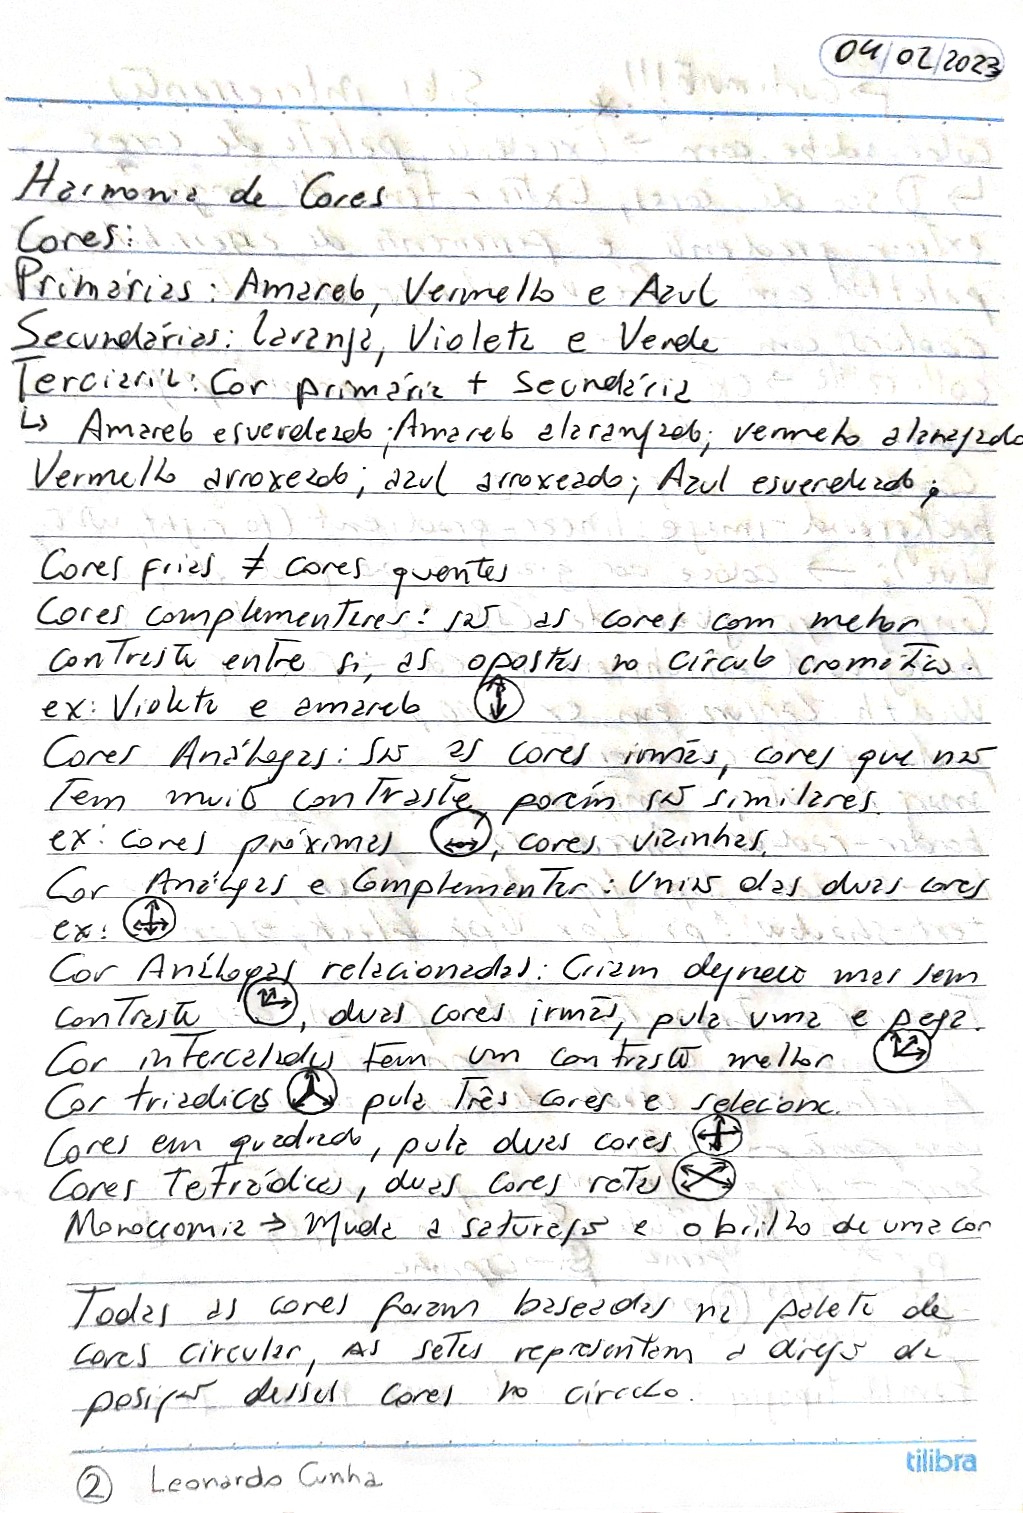 04/02/2023
Harmonia de Cores
Cores:
Primárias: Amarelo, Vermelho e Azul
Secundárias: laranja, Violeta e Verde
Terciaria: Cor primária + Secundária
↳ Amarelo esverdeado; Amarelo alaranjado; vermelho alaranjado
Vermelho arroxeado; azul arroxeado; Azul esverdeado;
Cores frias ≠ cores quentes
Cores complementares: são as cores com melhor
contraste entre si, as opostas no círculo cromático.
ex: Violeta e amarelo
Cores Análogas: São as cores irmãs, cores que não
Tem muito contraste, porém são similares.
ex: cores próximas, cores vizinhas.
Cor Análogas e Complementar: União das duas cores
ex:
Cor Análogas relacionadas: Criam degrado mas sem
contraste, duas cores irmãs, pula uma e pega.
Cor intercaladas tem um contraste melhor
Cor triadicas pula Três cores e seleciona.
Cores em quadrado, pula duas cores
Cores Tetrádicas, duas cores retas
Monocromia → Muda a saturação e o brilho de uma cor
Todas as cores foram baseadas na paleta de
cores circular, As setas representam a direção de
posição dessas cores no círculo.
tilibra
2 Leonardo Cunha